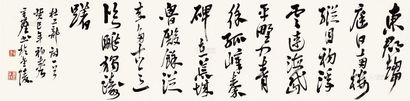 東郡趨
庭日南樓
縱目初浮
雲連海岱
平野入青
徐孤嶂秦
碑在荒城
魯殿餘從
來多古意
臨眺獨躊
躇
杜工部詩一首
癸巳年
書於金陵